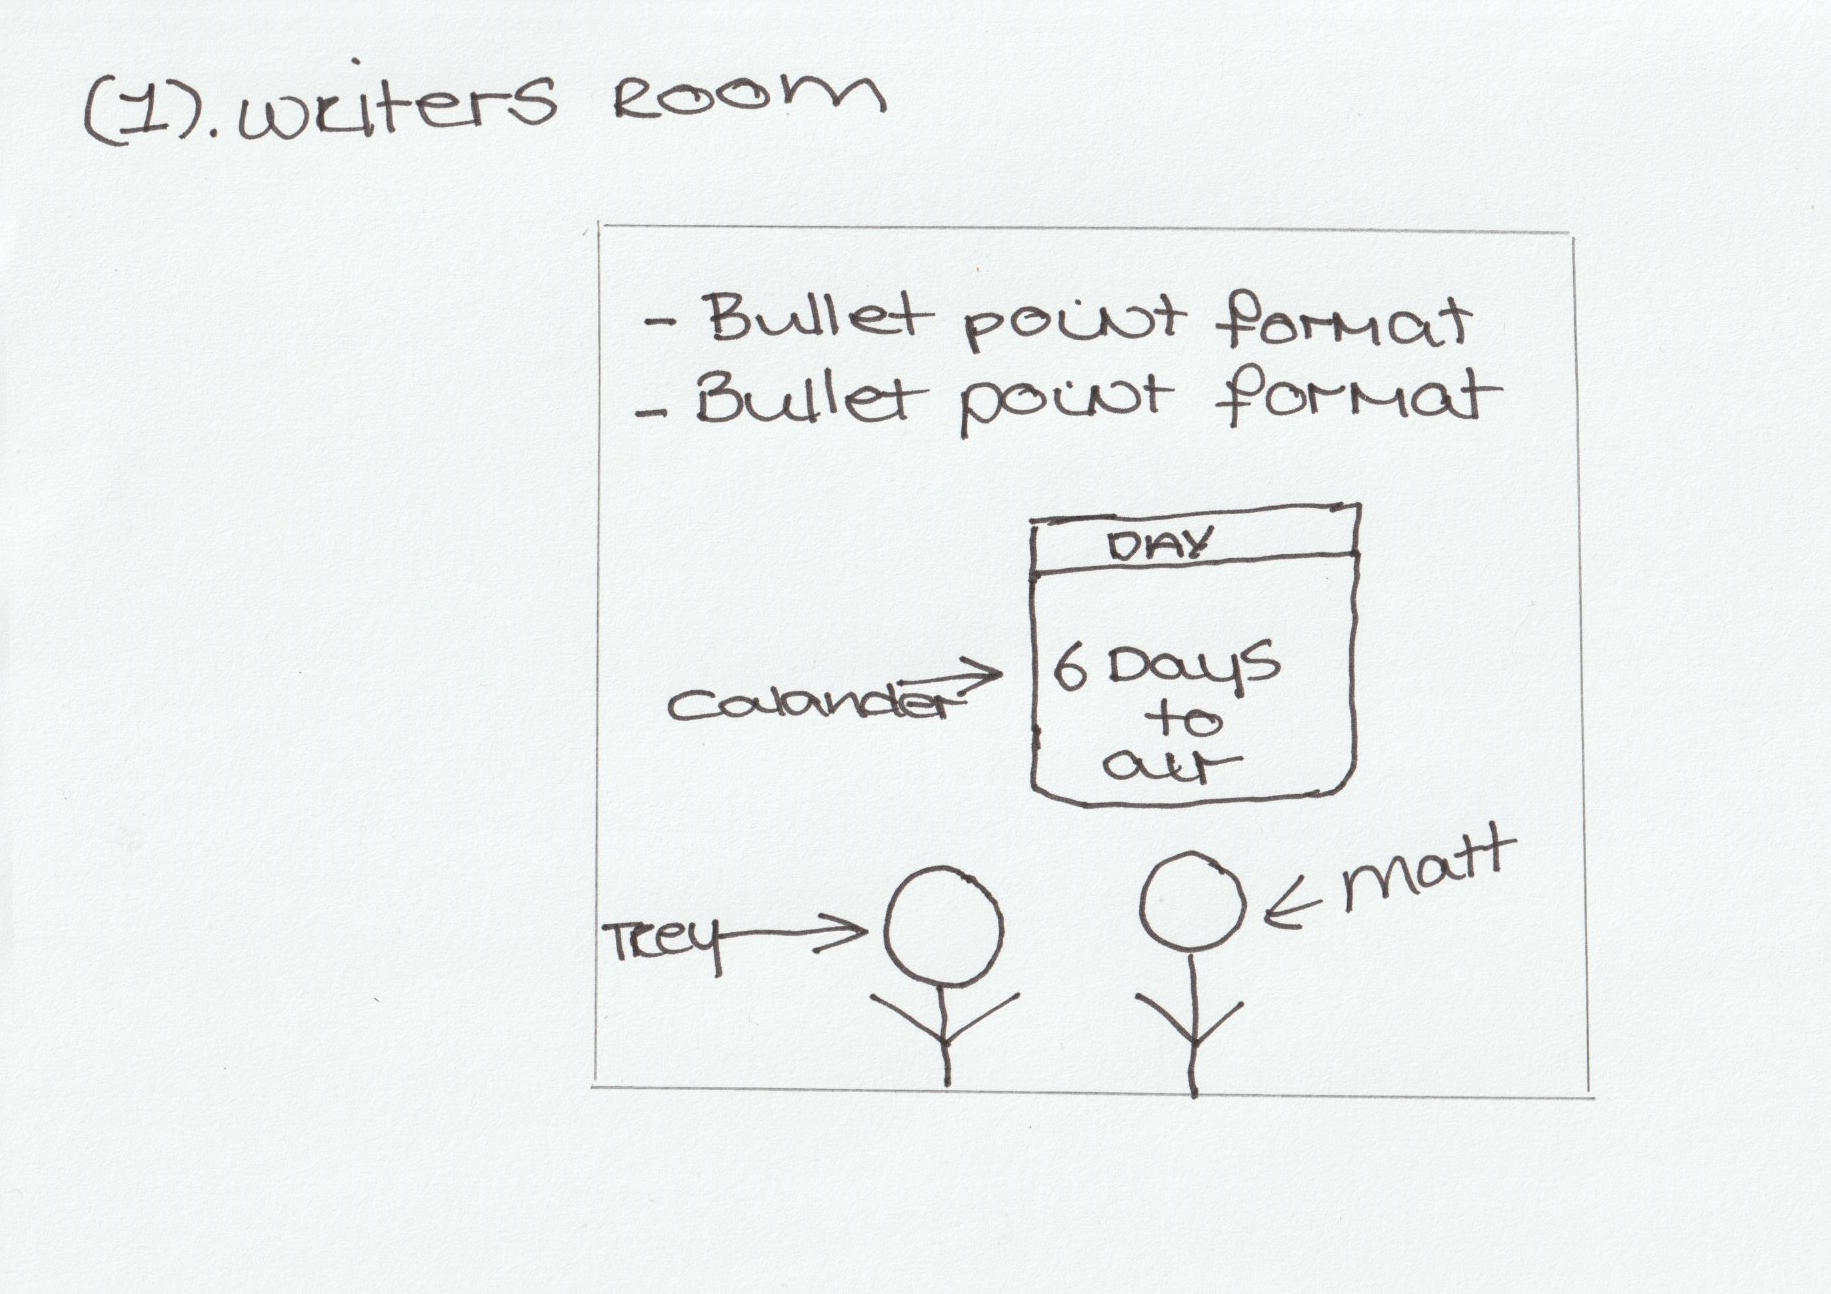 (1). writers Room
- Bullet point format
- Bullet point format
DAY
6 Days
to
air
Calander
Trey
Matt